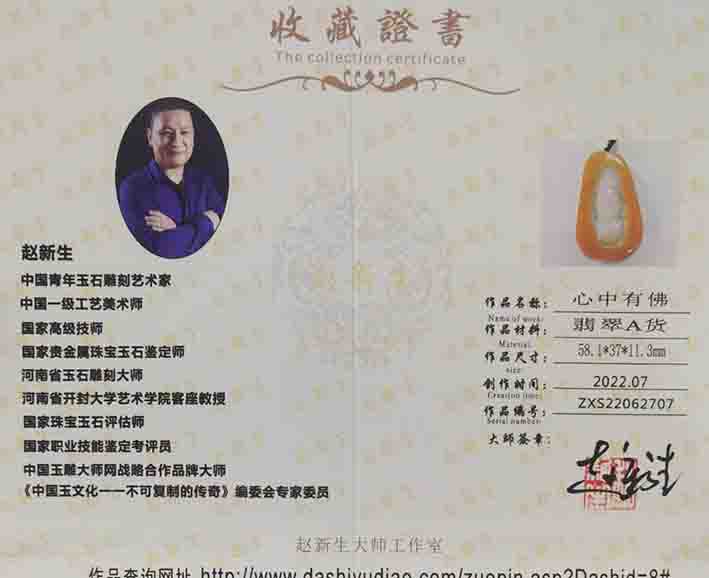 收藏證書
The collection certificate
赵新生
中国青年玉石雕刻艺术家
中国一级工艺美术师
国家高级技师
国家贵金属珠宝玉石鉴定师
河南省玉石雕刻大师
河南省开封大学艺术学院客座教授
国家珠宝玉石评估师
国家职业技能鉴定考评员
中国玉雕大师网战略合作品牌大师
《中国玉文化一一不可复制的传奇》编委会专家委员
作品名称： 心中有佛
Name of work:
作品材料： 翡翠A货
Material:
作品尺寸： 58.1*37*11.3mm
size:
创作时间： 2022.07
Creation time:
作品编号： ZXS22062707
Serial number:
大师签章：
赵新生
赵新生大师工作室
作品查询网址 http://www.dashiyudiao.com/zuopin.asp?Dashid=8#